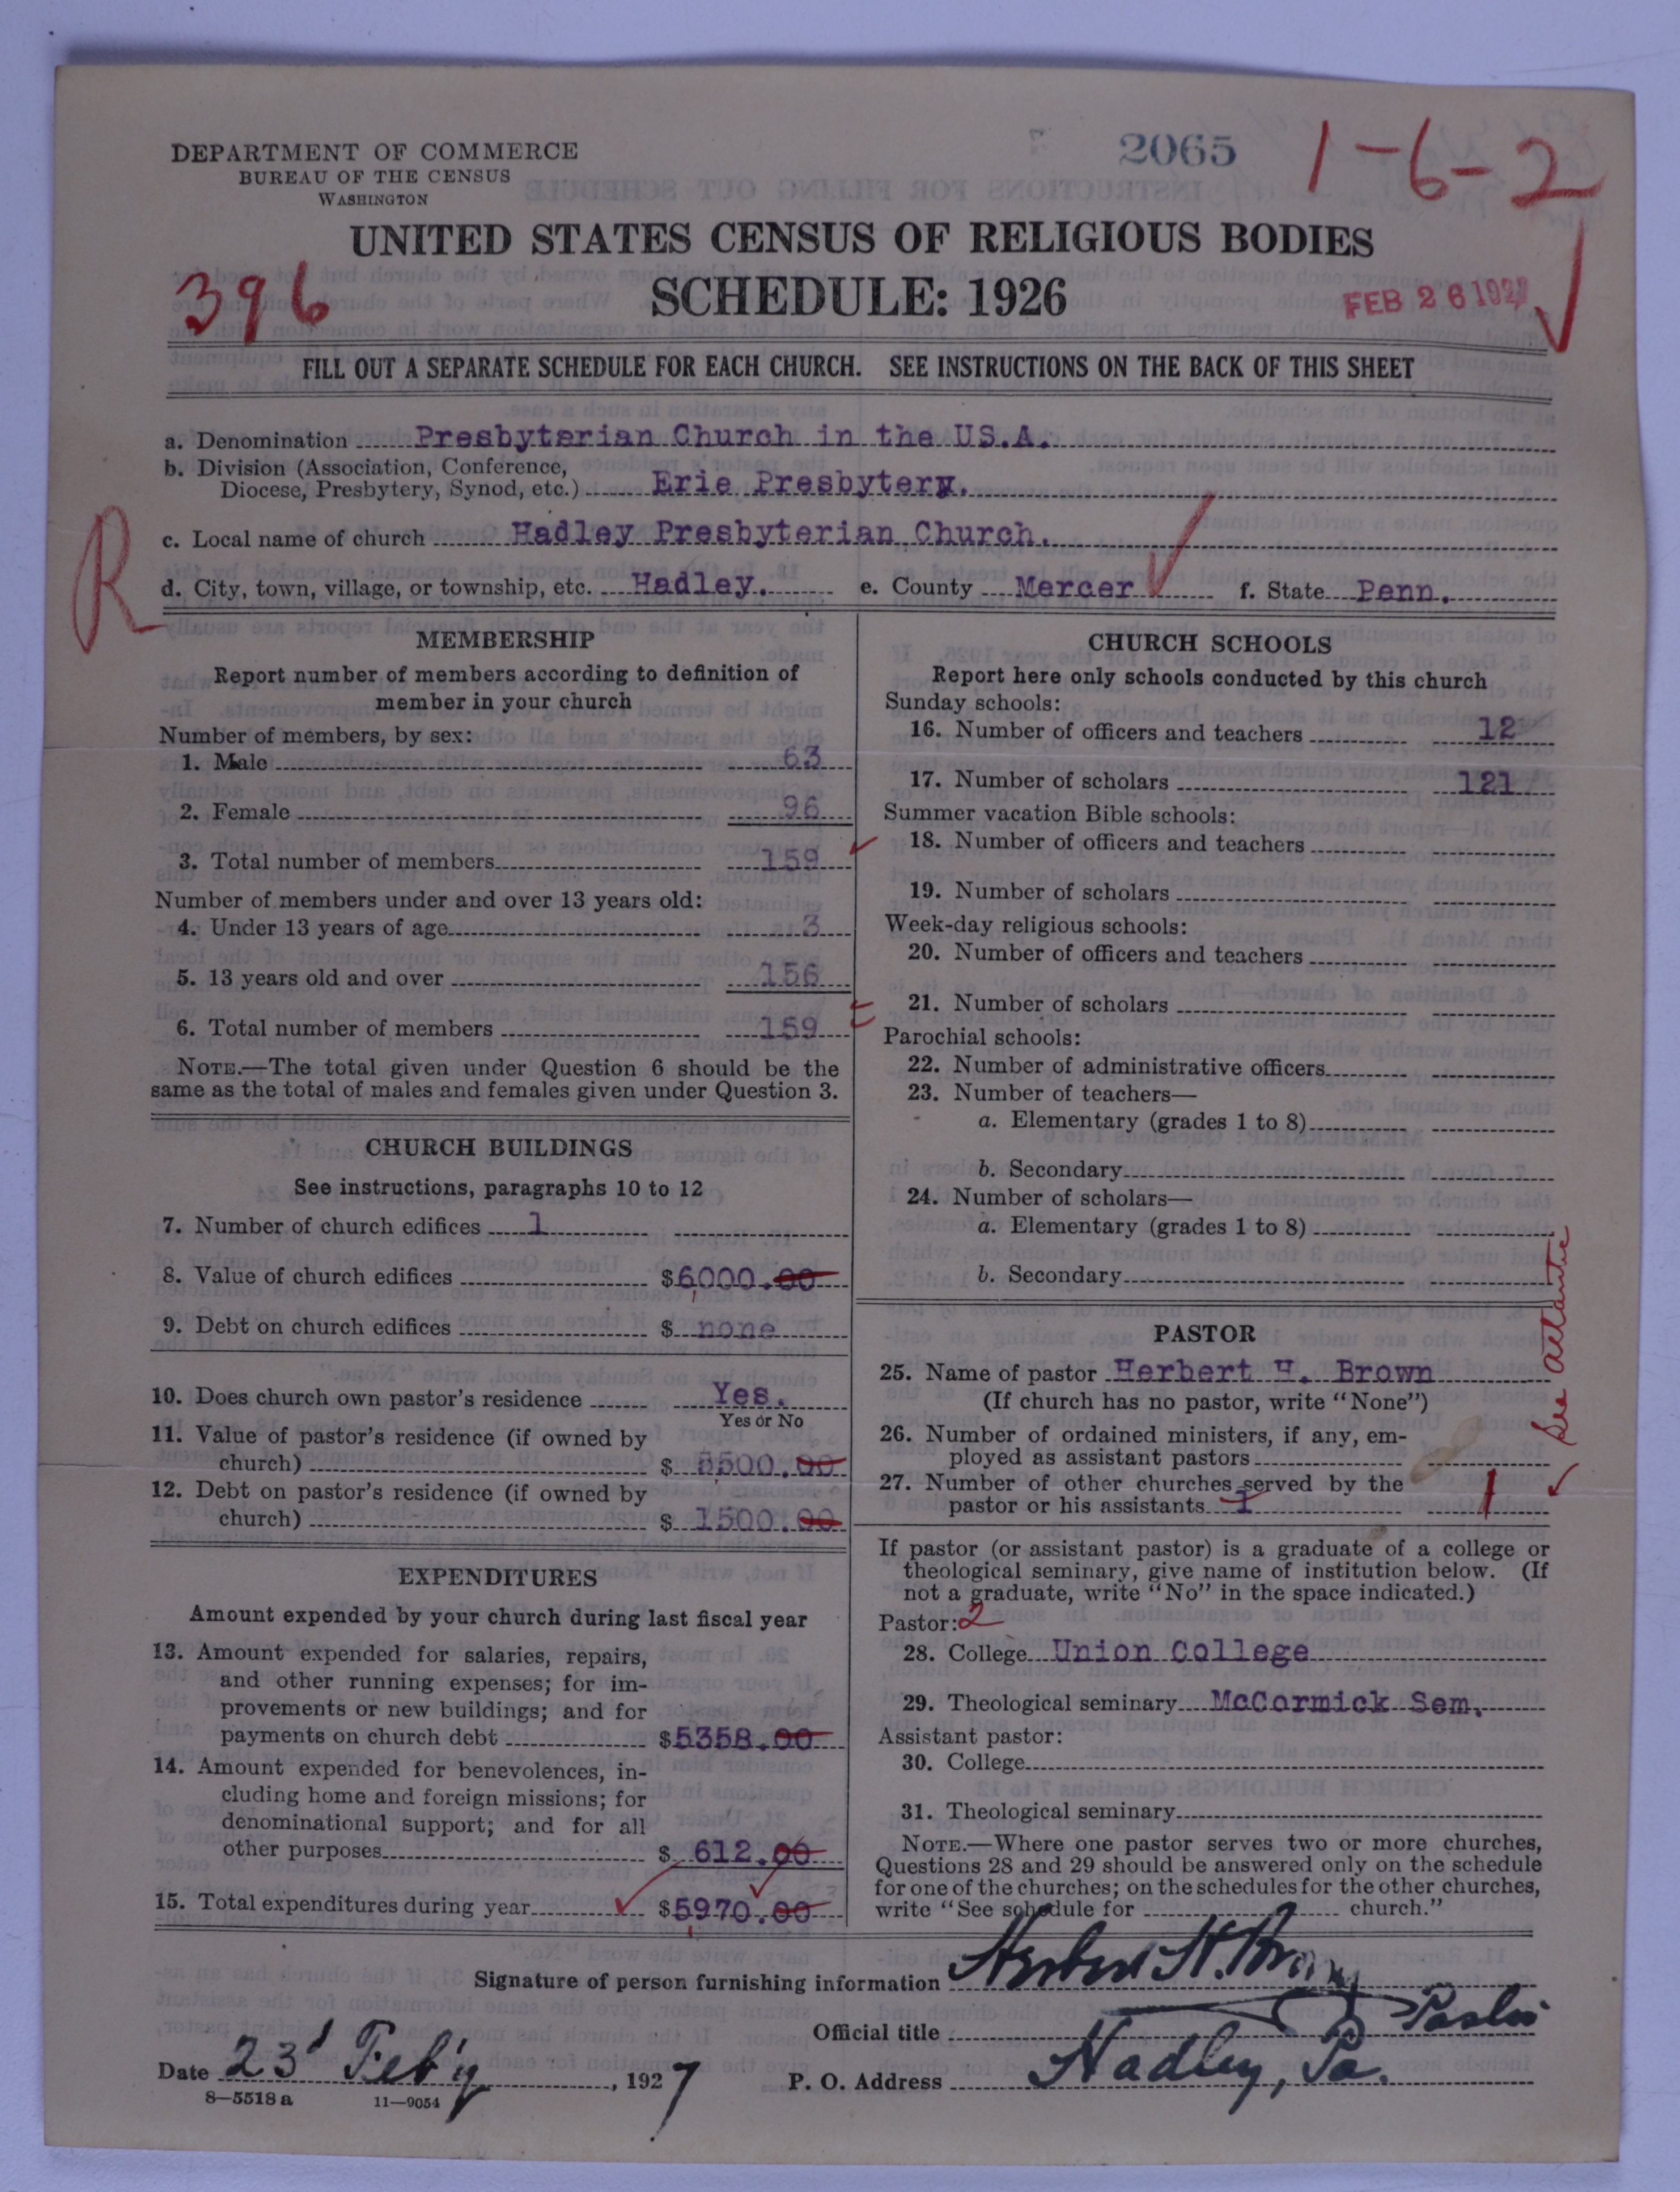 DEPARTMENT OF COMMERCE
BUREAU OF THE CENSUS
WASHINGTON
2065
1-6-2
UNITED STATES CENSUS OF RELIGIOUS BODIES
396
SCHEDULE: 1926
FEB 26 1927
FILL OUT A SEPARATE SCHEDULE FOR EACH CHURCH. SEE INSTRUCTIONS ON THE BACK OF THIS SHEET
a. Denomination Presbyterian Church in the US.A.
b. Division (Association, Conference,
Diocese, Presbytery, Synod, etc.) Erie Presbytery.
R
c. Local name of church Hadley Presbyterian Church.
d. City, town, village, or township, etc. Hadley. e. County Mercer f. State Penn.
MEMBERSHIP
Report number of members according to definition of
member in your church
Number of members, by sex:
1. Male 63
2. Female 96
3. Total number of members 159
Number of members under and over 13 years old:
4. Under 13 years of age 3
5. 13 years old and over 156
6. Total number of members 159
NOTE.—The total given under Question 6 should be the
same as the total of males and females given under Question 3.
CHURCH BUILDINGS
See instructions, paragraphs 10 to 12
7. Number of church edifices 1
8. Value of church edifices $6000.00
9. Debt on church edifices $ none
10. Does church own pastor's residence Yes.
Yes or No
11. Value of pastor's residence (if owned by
church) $ 5500.00
12. Debt on pastor's residence (if owned by
church) $ 1500.00
EXPENDITURES
Amount expended by your church during last fiscal year
13. Amount expended for salaries, repairs,
and other running expenses; for im-
provements or new buildings; and for
payments on church debt $5358.00
14. Amount expended for benevolences, in-
cluding home and foreign missions; for
denominational support; and for all
other purposes $ 612.00
15. Total expenditures during year $5970.00
CHURCH SCHOOLS
Report here only schools conducted by this church
Sunday schools:
16. Number of officers and teachers 12
17. Number of scholars 121
Summer vacation Bible schools:
18. Number of officers and teachers
19. Number of scholars
Week-day religious schools:
20. Number of officers and teachers
21. Number of scholars
Parochial schools:
22. Number of administrative officers
23. Number of teachers—
a. Elementary (grades 1 to 8)
b. Secondary
24. Number of scholars—
a. Elementary (grades 1 to 8)
b. Secondary
PASTOR
25. Name of pastor Herbert H. Brown
(If church has no pastor, write "None")
26. Number of ordained ministers, if any, em-
ployed as assistant pastors
27. Number of other churches served by the
pastor or his assistants 1 1
See Atlantic
If pastor (or assistant pastor) is a graduate of a college or
theological seminary, give name of institution below. (If
not a graduate, write "No" in the space indicated.)
Pastor: 2
28. College Union College
29. Theological seminary McCormick Sem.
Assistant pastor:
30. College
31. Theological seminary
NOTE.—Where one pastor serves two or more churches,
Questions 28 and 29 should be answered only on the schedule
for one of the churches; on the schedules for the other churches,
write "See schedule for church."
Signature of person furnishing information Herbert H. Brown
Official title Pastor
Date 23d Feb'y, 1927 P. O. Address Hadley, Pa.
8—5518 a 11—9054